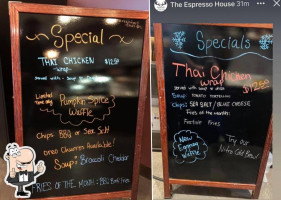 Special
THAI CHICKEN $12.50
wrap
served with - soup
Limited
time only
Pumpkin Spice
Waffle
Chips: BBQ or Sea Salt
Oreo Churros Available!
Soup: Broccoli Cheddar
FRIES OF THE MONTH: BBQ
The Espresso House 31m
Specials
Thai Chicken
wrap $12.50
served with soup or chips
Soup: TOMATO TORTELLINI
Chips: SEA SALT / BLUE CHEESE
Fries of the month:
Festive Fries
New
Eggnog
Waffle
Try our
Nitro Cold Brew!